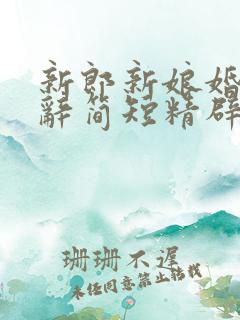 新郎新娘婚
辭简短精辟
珊珊不遲
未任同意禁止转载